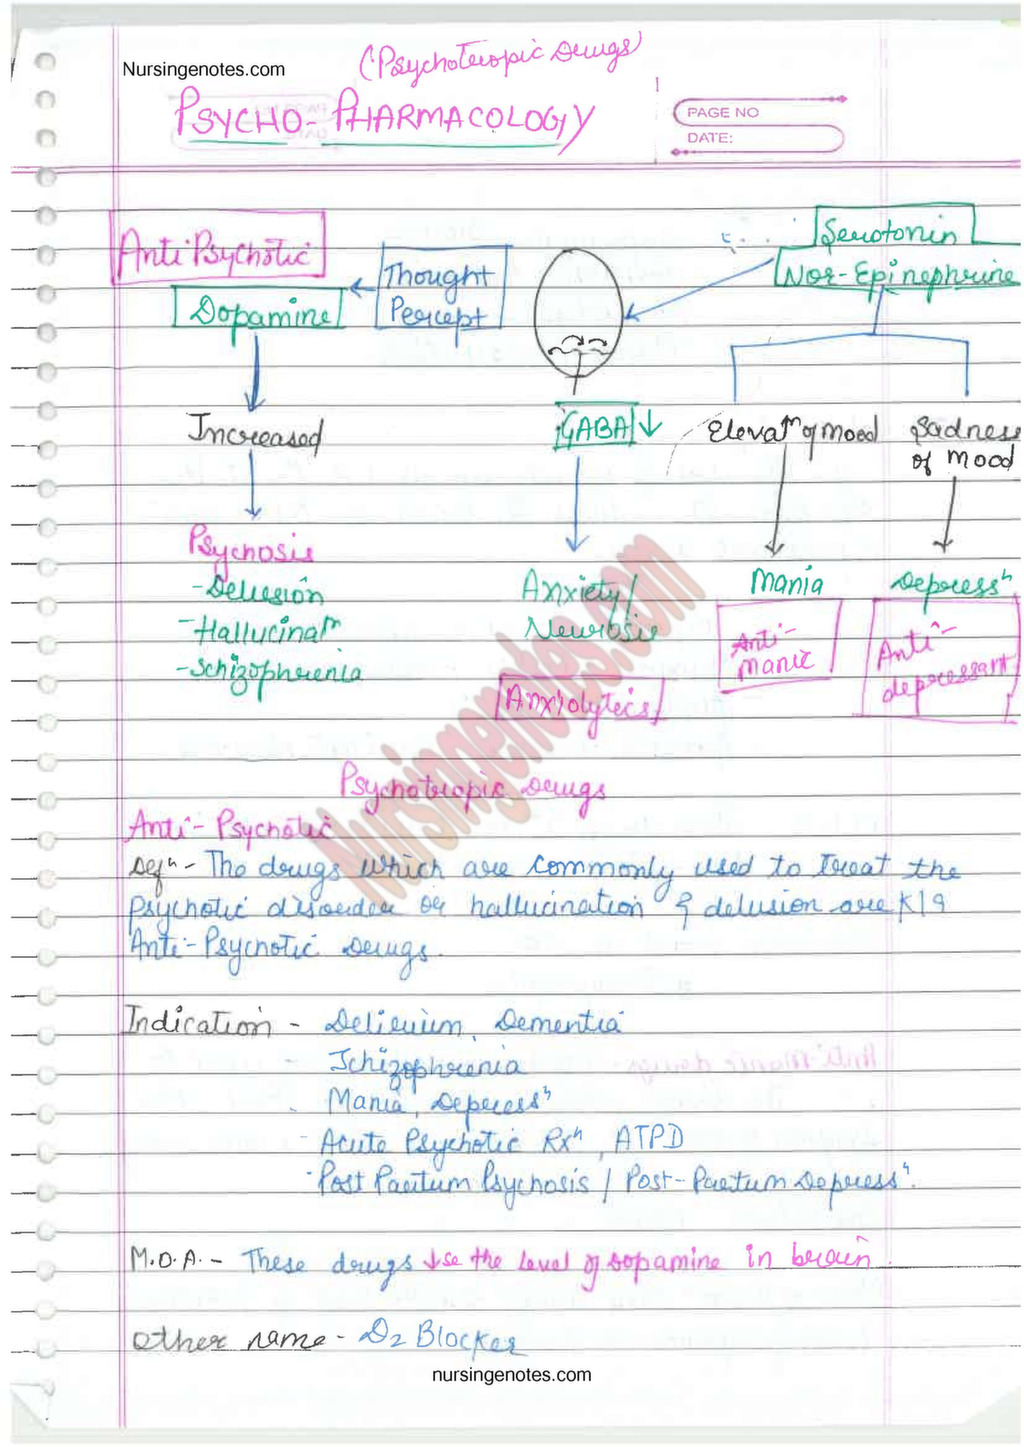 (Psychotropic Drugs)
Nursingenotes.com
PSYCHO-PHARMACOLOGY
PAGE NO
DATE:
Anti Psychotic
Dopamine
Thought
Percept
Serotonin
Nor-Epinephrine
Increased
GABA ↓
Elevaⁿ of mood
Sadness
of mood
Psychosis
-Delusion
-Hallucinaⁿ
-Schizophrenia
Anxiety/
Neurosis
Mania
Depressⁿ
Anxiolytics
Anti-
manic
Anti-
depressant
Nursingenotes.com
Psychotropic Drugs
Anti-Psychotic
Defⁿ - The drugs which are commonly used to treat the
Psychotic disorder or hallucination & delusion are K/9
Anti-Psychotic Drugs.
Indication - Delirium, Dementia
- Schizophrenia
Mania, Depressⁿ
- Acute Psychotic Rxⁿ, ATPD
- Post Partum Psychosis / Post-Partum Depressⁿ.
M.O.A. - These drugs ↓se the level of dopamine in brain.
Other name - D2 Blocker
nursingenotes.com